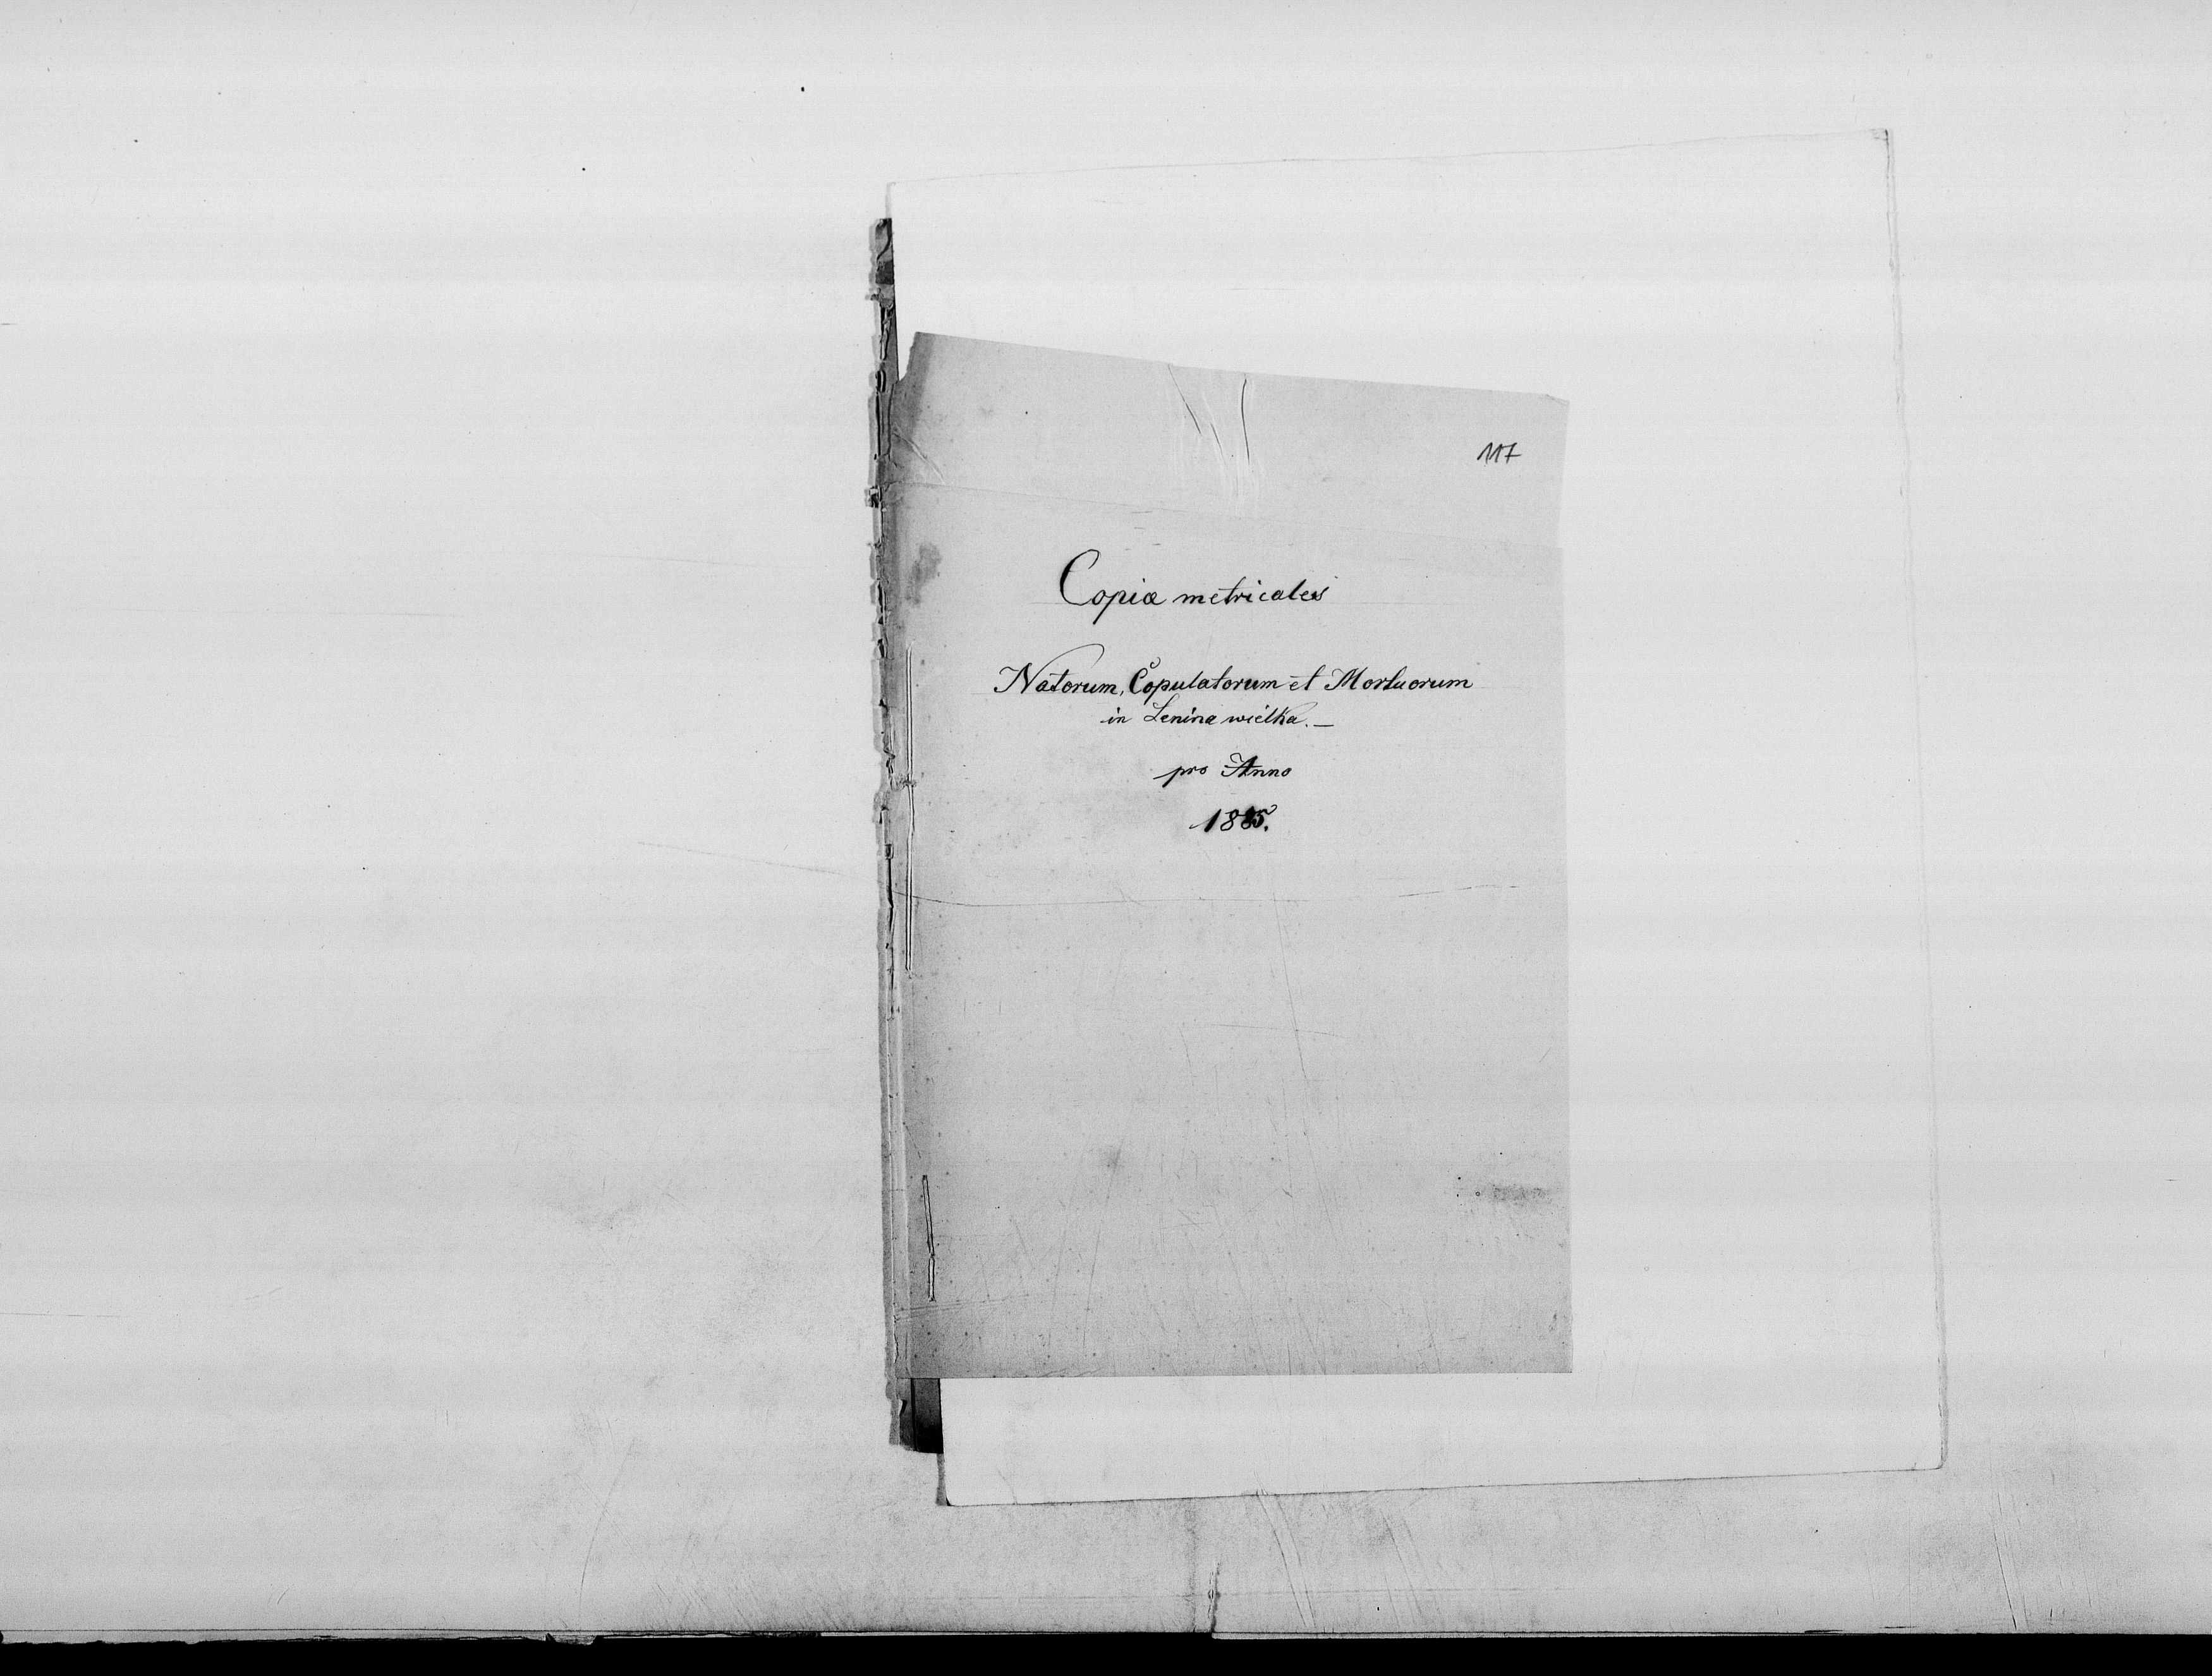 117
Copiæ metricales
Natorum, Copulatorum et Mortuorum
in Lenina wiélka. —
pro Anno
1885.